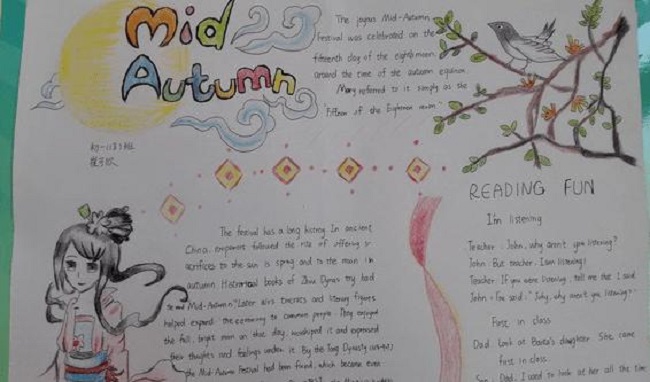 Mid
Autumn
The joyous Mid-Autumn
festival was celebrated on the
fifteenth day of the eighth moon,
around the time of the autumn equinox.
Many referred to it simply as the
"Fifteen of the Eighth moon".
The festival has a long history. In ancient
China, emperors followed the rite of offering
sacrifices to the sun in spring and to the moon in
autumn. Historical books of Zhou Dynasty had
Mid-Autumn". Later and literary figures
helped expand the ceremony to common people. They enjoyed
the full, bright moon on that day, worshiped it and expressed
their thoughts and feelings under it. By the Tang Dynasty
the Mid-Autumn Festival had been fixed, which became even
READING FUN
I'm listening
Teacher: John, why aren't you listening?
John: But teacher, I am listening!
Teacher: If you were listening, tell me what I said.
John: You said: "John, why aren't you listening?"
First in class
Dad: look at daughter. She come
first in class.
Dad, I used to look at her all the time